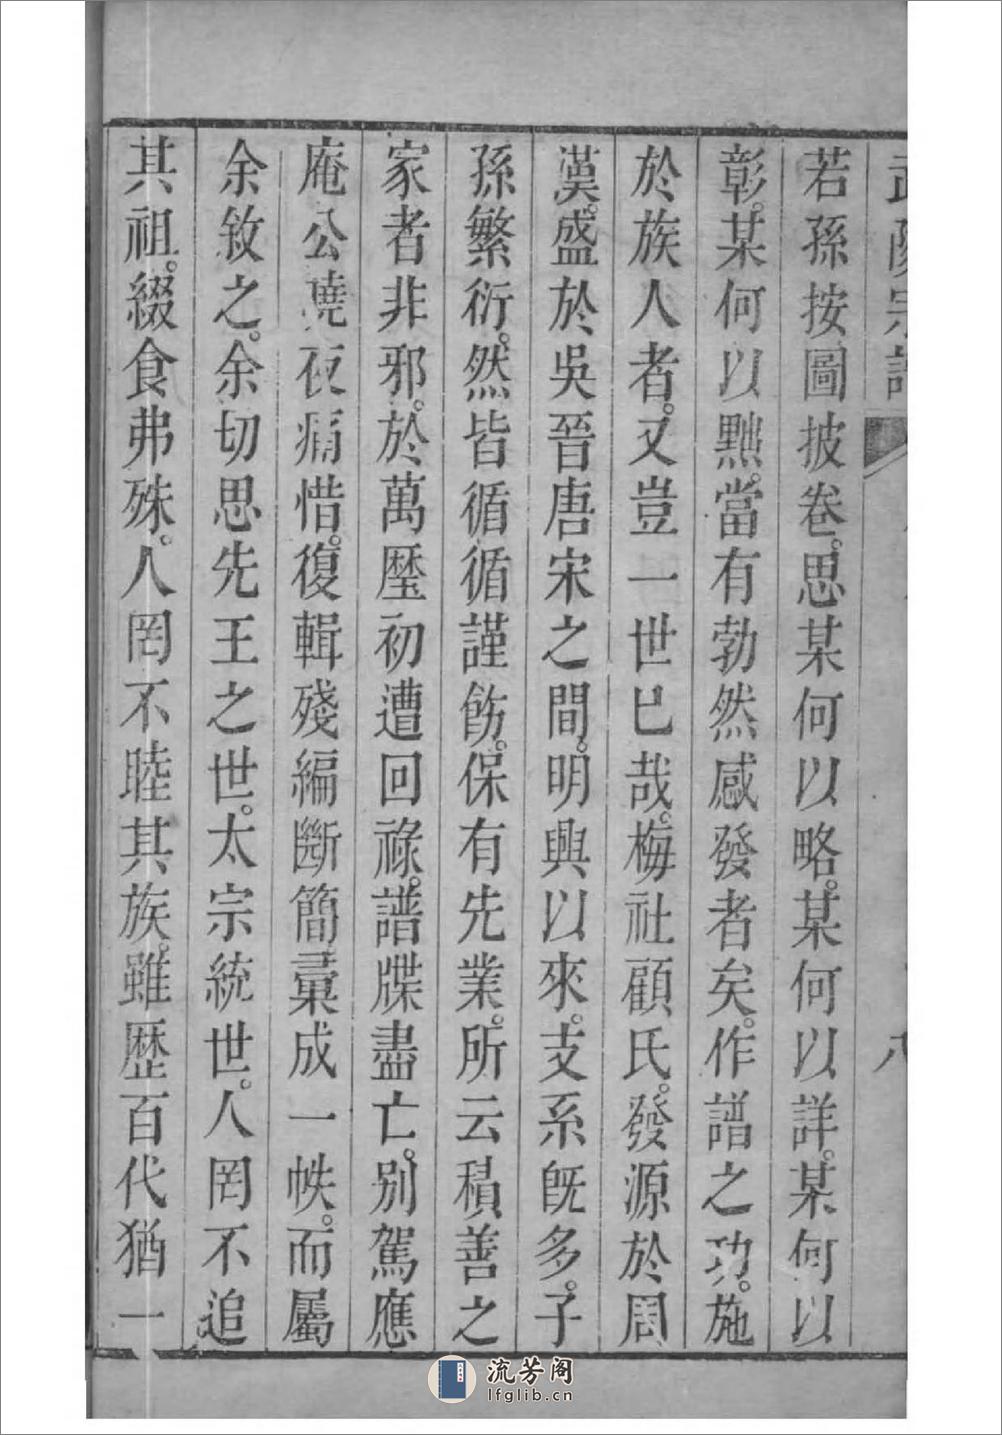 若孫按圖披卷。思某何以略。某何以詳。某何以
彰。某何以黙。當有勃然感發者矣。作譜之功。施
於族人者。又豈一世已哉。梅社顧氏。發源於周
漢。盛於吳晉唐宋之間。明興以來。支系既多。子
孫繁衍。然皆循循謹飭。保有先業。所云積善之
家者非邪。於萬曆初遭回祿。譜牒盡亡。別駕應
庵公曉夜痛惜。復輯殘編斷簡彙成一帙。而屬
余敘之。余切思先王之世。太宗統世。人罔不追
其祖。綴食弗殊。人罔不睦其族。雖歷百代猶一
武陵宗譜
八
流芳阁
lfglib.cn